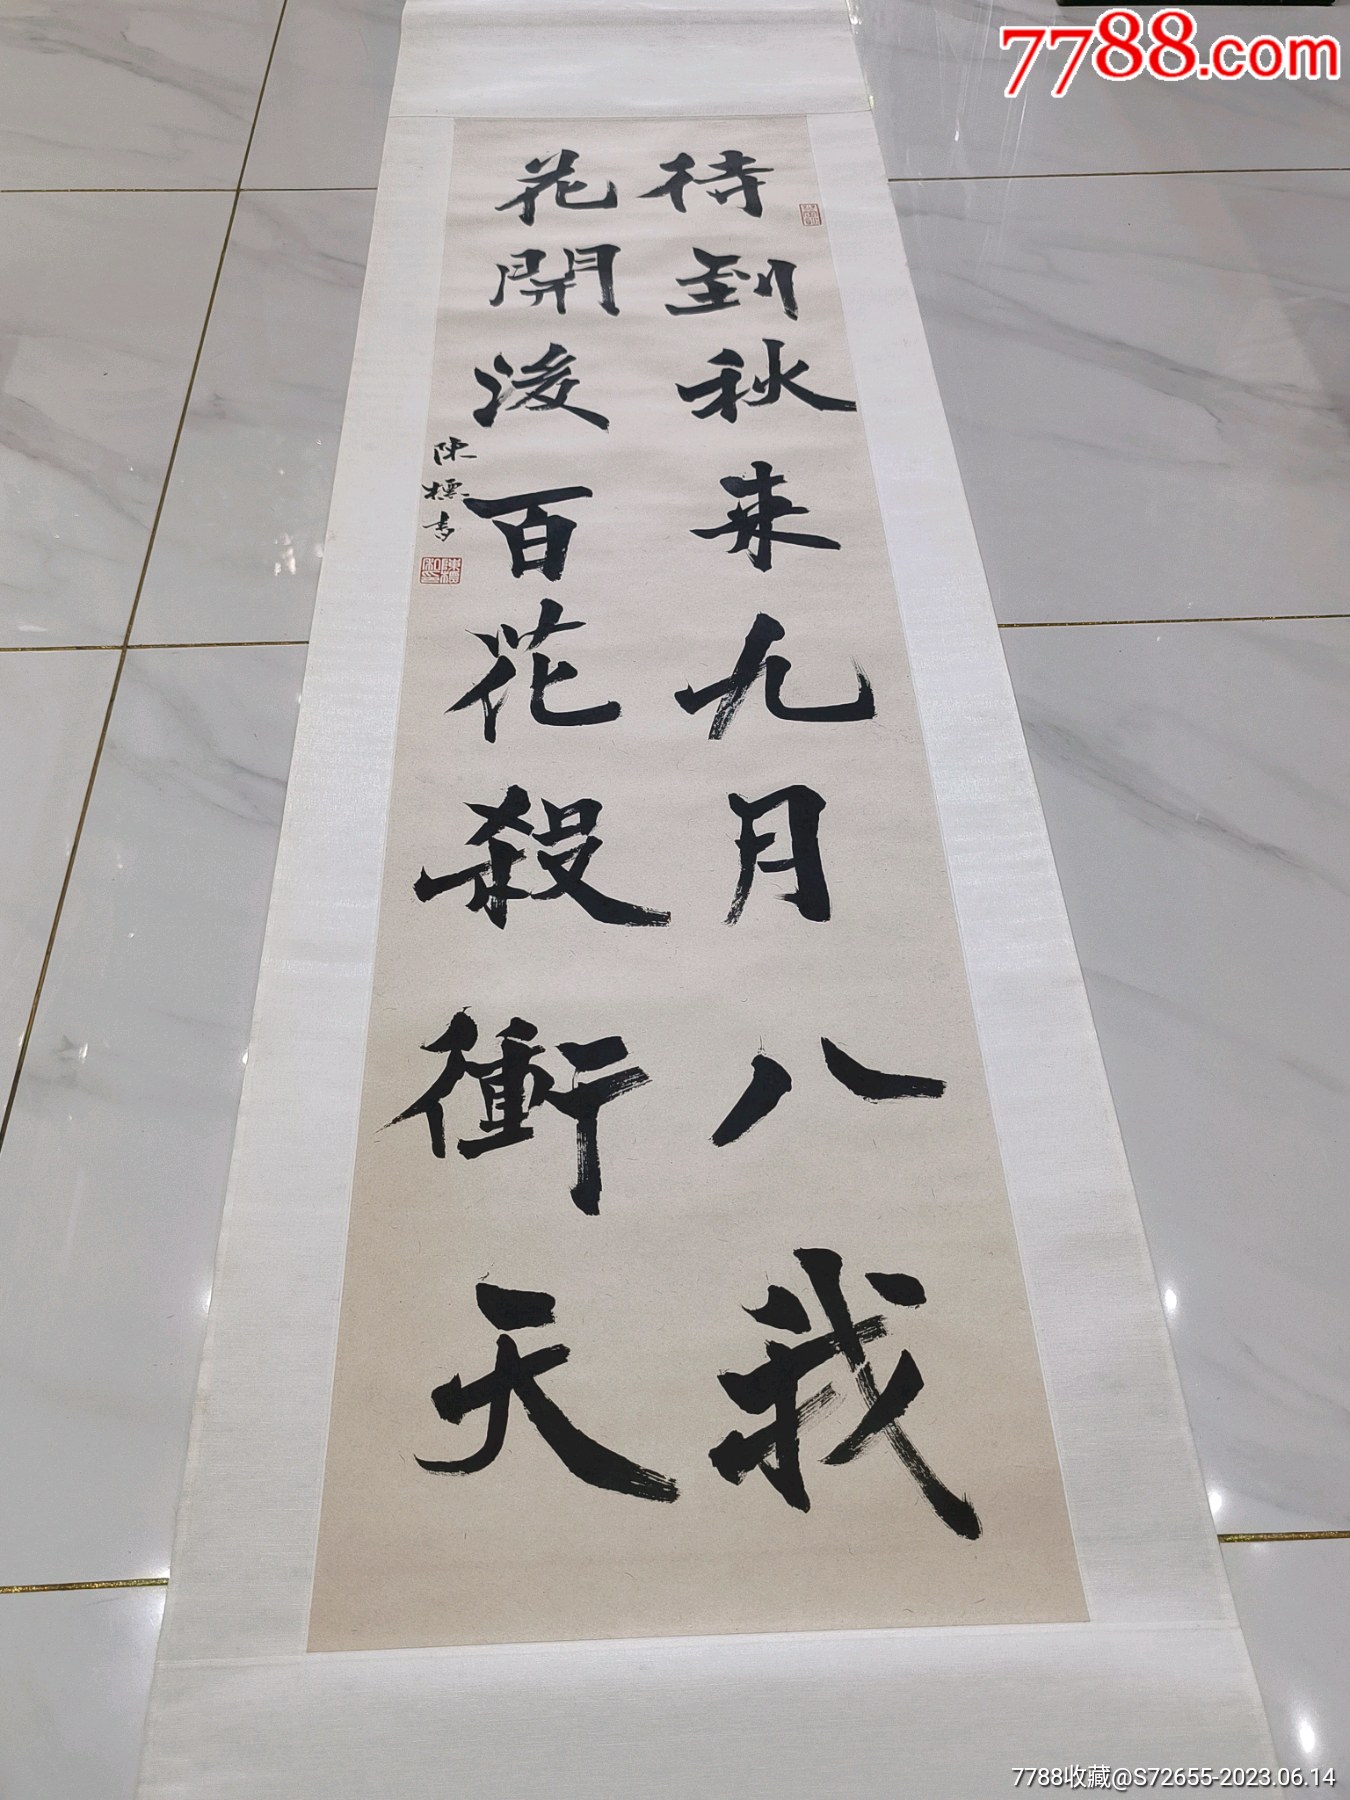 7788.com
待到秋来九月八我
花開後百花殺衝天
陳標書
7788收藏@S72655-2023.06.14